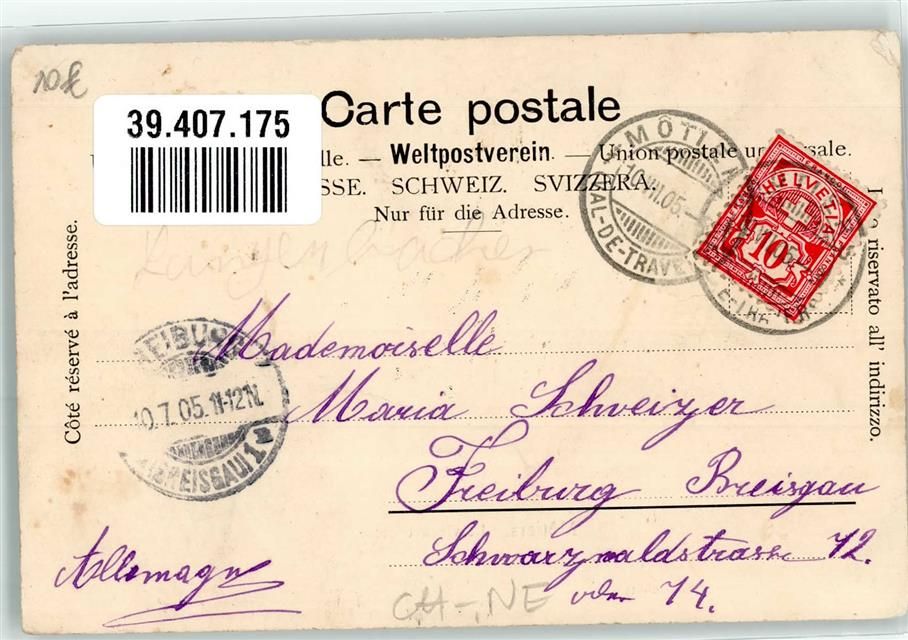 10€
39.407.175
Carte postale
lle. — Weltpostverein. — Union postale universale.
SSE. SCHWEIZ. SVIZZERA.
Nur für die Adresse.
Côté réservé à l'adresse.
riservato all' indirizzo.
MÔTIERS
10.VII.05.–
VAL-DE-TRAVERS
HELVETIA
10
Langenbacher
FREIBURG
10.7.05.11-12N.
BREISGAU 1
Mademoiselle
Maria Schweizer
Freiburg Breisgau
Schwarzwaldstrasse 72.
oder 74.
Allemagne
CH-NE